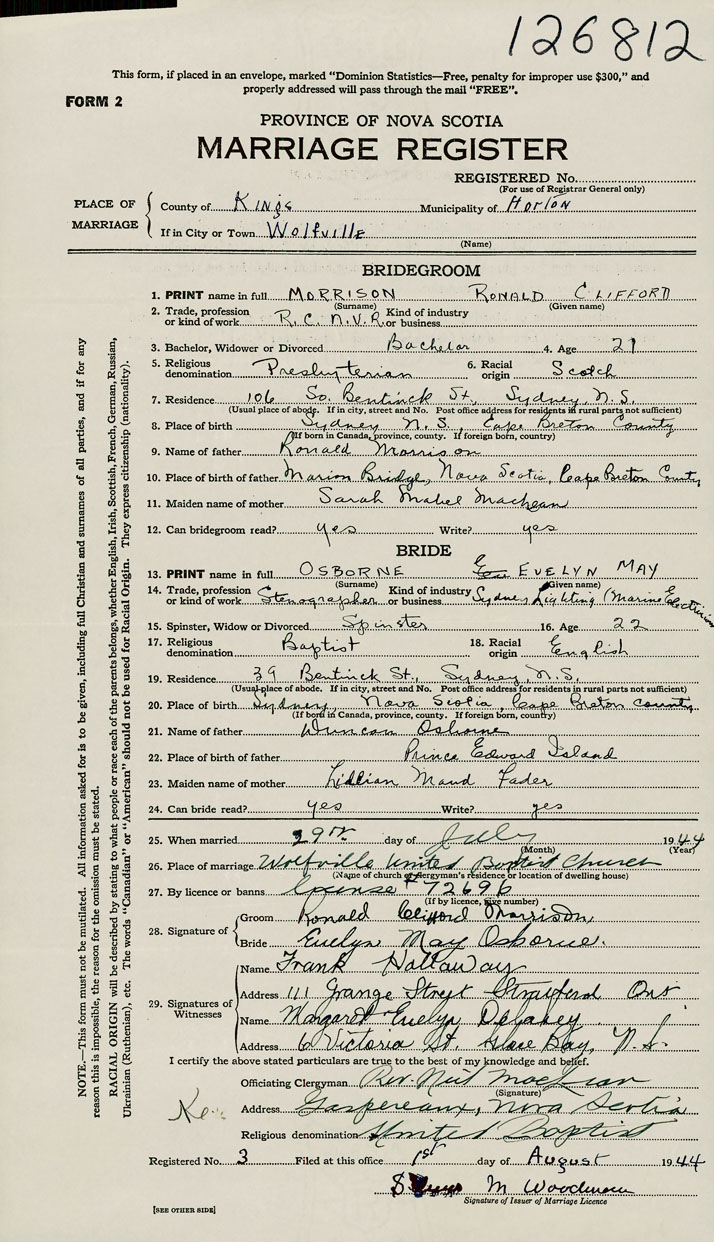 126812
This form, if placed in an envelope, marked “Dominion Statistics—Free, penalty for improper use $300,” and
properly addressed will pass through the mail “FREE”.
FORM 2
PROVINCE OF NOVA SCOTIA
MARRIAGE REGISTER
REGISTERED No.
(For use of Registrar General only)
PLACE OF MARRIAGE
County of Kings Municipality of Horton
If in City or Town Wolfville
(Name)
BRIDEGROOM
1. PRINT name in full MORRISON RONALD CLIFFORD
(Surname) (Given name)
2. Trade, profession or kind of work R.C.N.V.R. Kind of industry or business
3. Bachelor, Widower or Divorced Bachelor 4. Age 21
5. Religious denomination Presbyterian 6. Racial origin Scotch
7. Residence 106 So. Bentinck St., Sydney, N.S.
(Usual place of abode. If in city, street and No. Post office address for residents in rural parts not sufficient)
8. Place of birth Sydney N.S., Cape Breton County
(If born in Canada, province, county. If foreign born, country)
9. Name of father Ronald Morrison
10. Place of birth of father Marion Bridge, Nova Scotia, Cape Breton County
11. Maiden name of mother Sarah Mabel MacKean
12. Can bridegroom read? yes Write? yes
BRIDE
13. PRINT name in full OSBORNE EVELYN MAY
(Surname) (Given name)
14. Trade, profession or kind of work Stenographer Kind of industry or business Sydney Lighting (Marine Electrician
15. Spinster, Widow or Divorced Spinster 16. Age 22
17. Religious denomination Baptist 18. Racial origin English
19. Residence 39 Bentinck St., Sydney, N.S.
(Usual place of abode. If in city, street and No. Post office address for residents in rural parts not sufficient)
20. Place of birth Sydney, Nova Scotia, Cape Breton County
(If born in Canada, province, county. If foreign born, country)
21. Name of father Duncan Osborne
22. Place of birth of father Prince Edward Island
23. Maiden name of mother Lillian Maud Fader
24. Can bride read? yes Write? yes
25. When married 29th day of July 1944
(Month) (Year)
26. Place of marriage Wolfville United Baptist Church
(Name of church or clergyman's residence or location of dwelling house)
27. By licence or banns License # 72696
(If by licence, give number)
28. Signature of
Groom Ronald Clifford Morrison
Bride Evelyn May Osborne.
29. Signatures of Witnesses
Name Frank Hallaway
Address 111 Grange Street Stratford Ont
Name Margaret Evelyn Delaney
Address 6 Victoria St. Glace Bay, N.S.
I certify the above stated particulars are true to the best of my knowledge and belief.
Officiating Clergyman Rev. Neil MacLean
(Signature)
Address Gaspereaux, Nova Scotia
Religious denomination United Baptist
Registered No. 3 Filed at this office 1st day of August 1944
M Woodman
Signature of Issuer of Marriage Licence
[SEE OTHER SIDE]
NOTE.—This form must not be mutilated. All information asked for is to be given, including full Christian and surnames of all parties, and if for any
reason this is impossible, the reason for the omission must be stated.
RACIAL ORIGIN will be described by stating to what people or race each of the parents belongs, whether English, Irish, Scottish, French, German, Russian,
Ukrainian (Ruthenian), etc. The words “Canadian” or “American” should not be used for Racial Origin. They express citizenship (nationality).